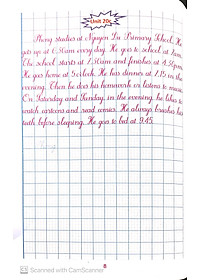 Unit 20c
Phong studies at Nguyen Du Primary School. He
gets up at 6.30am every day. He goes to school at 7am.
The school starts at 7.30am and finishes at 4.30pm.
He goes home at 5 o'clock. He has dinner at 7.15 in the
evening. Then he does his homework or listens to music.
On Saturday and Sunday, in the evening, he likes to
watch cartoons and read comics. He always brushes his
teeth before sleeping. He goes to bed at 9.45.
8
Scanned with CamScanner